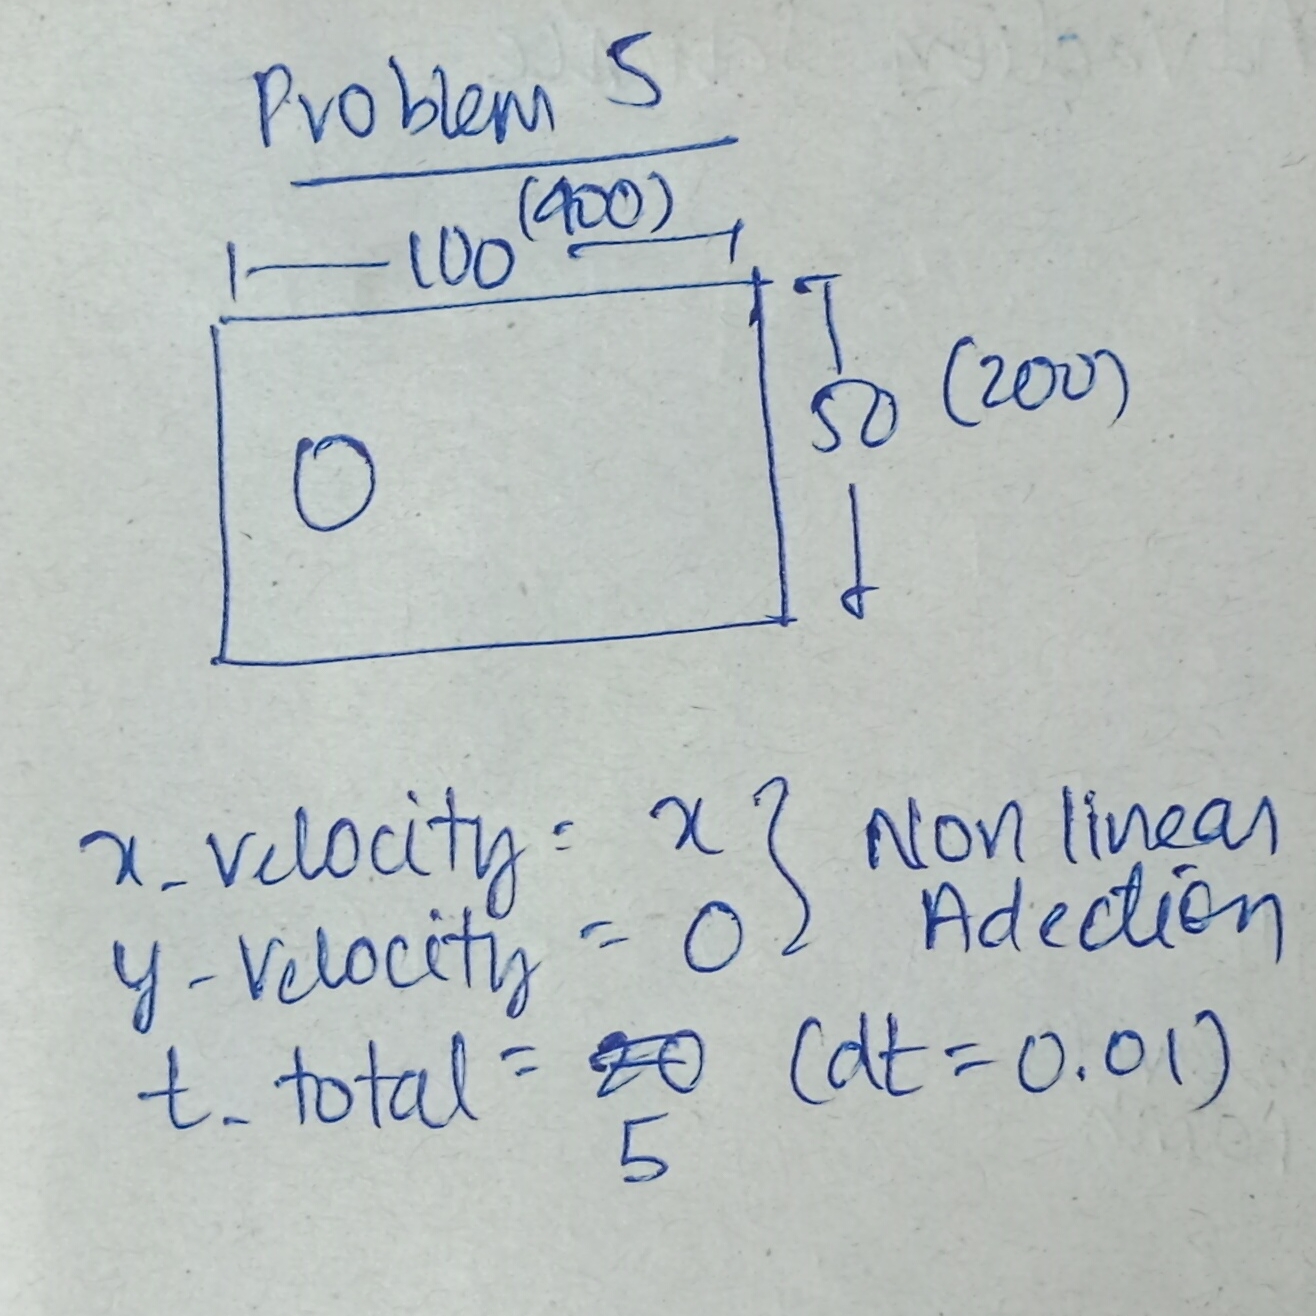 Problem 5
(400)
100
50 (200)
x-velocity = x } Non linear
y-velocity = 0 Adection
t-total = 20 (dt = 0.01)
5